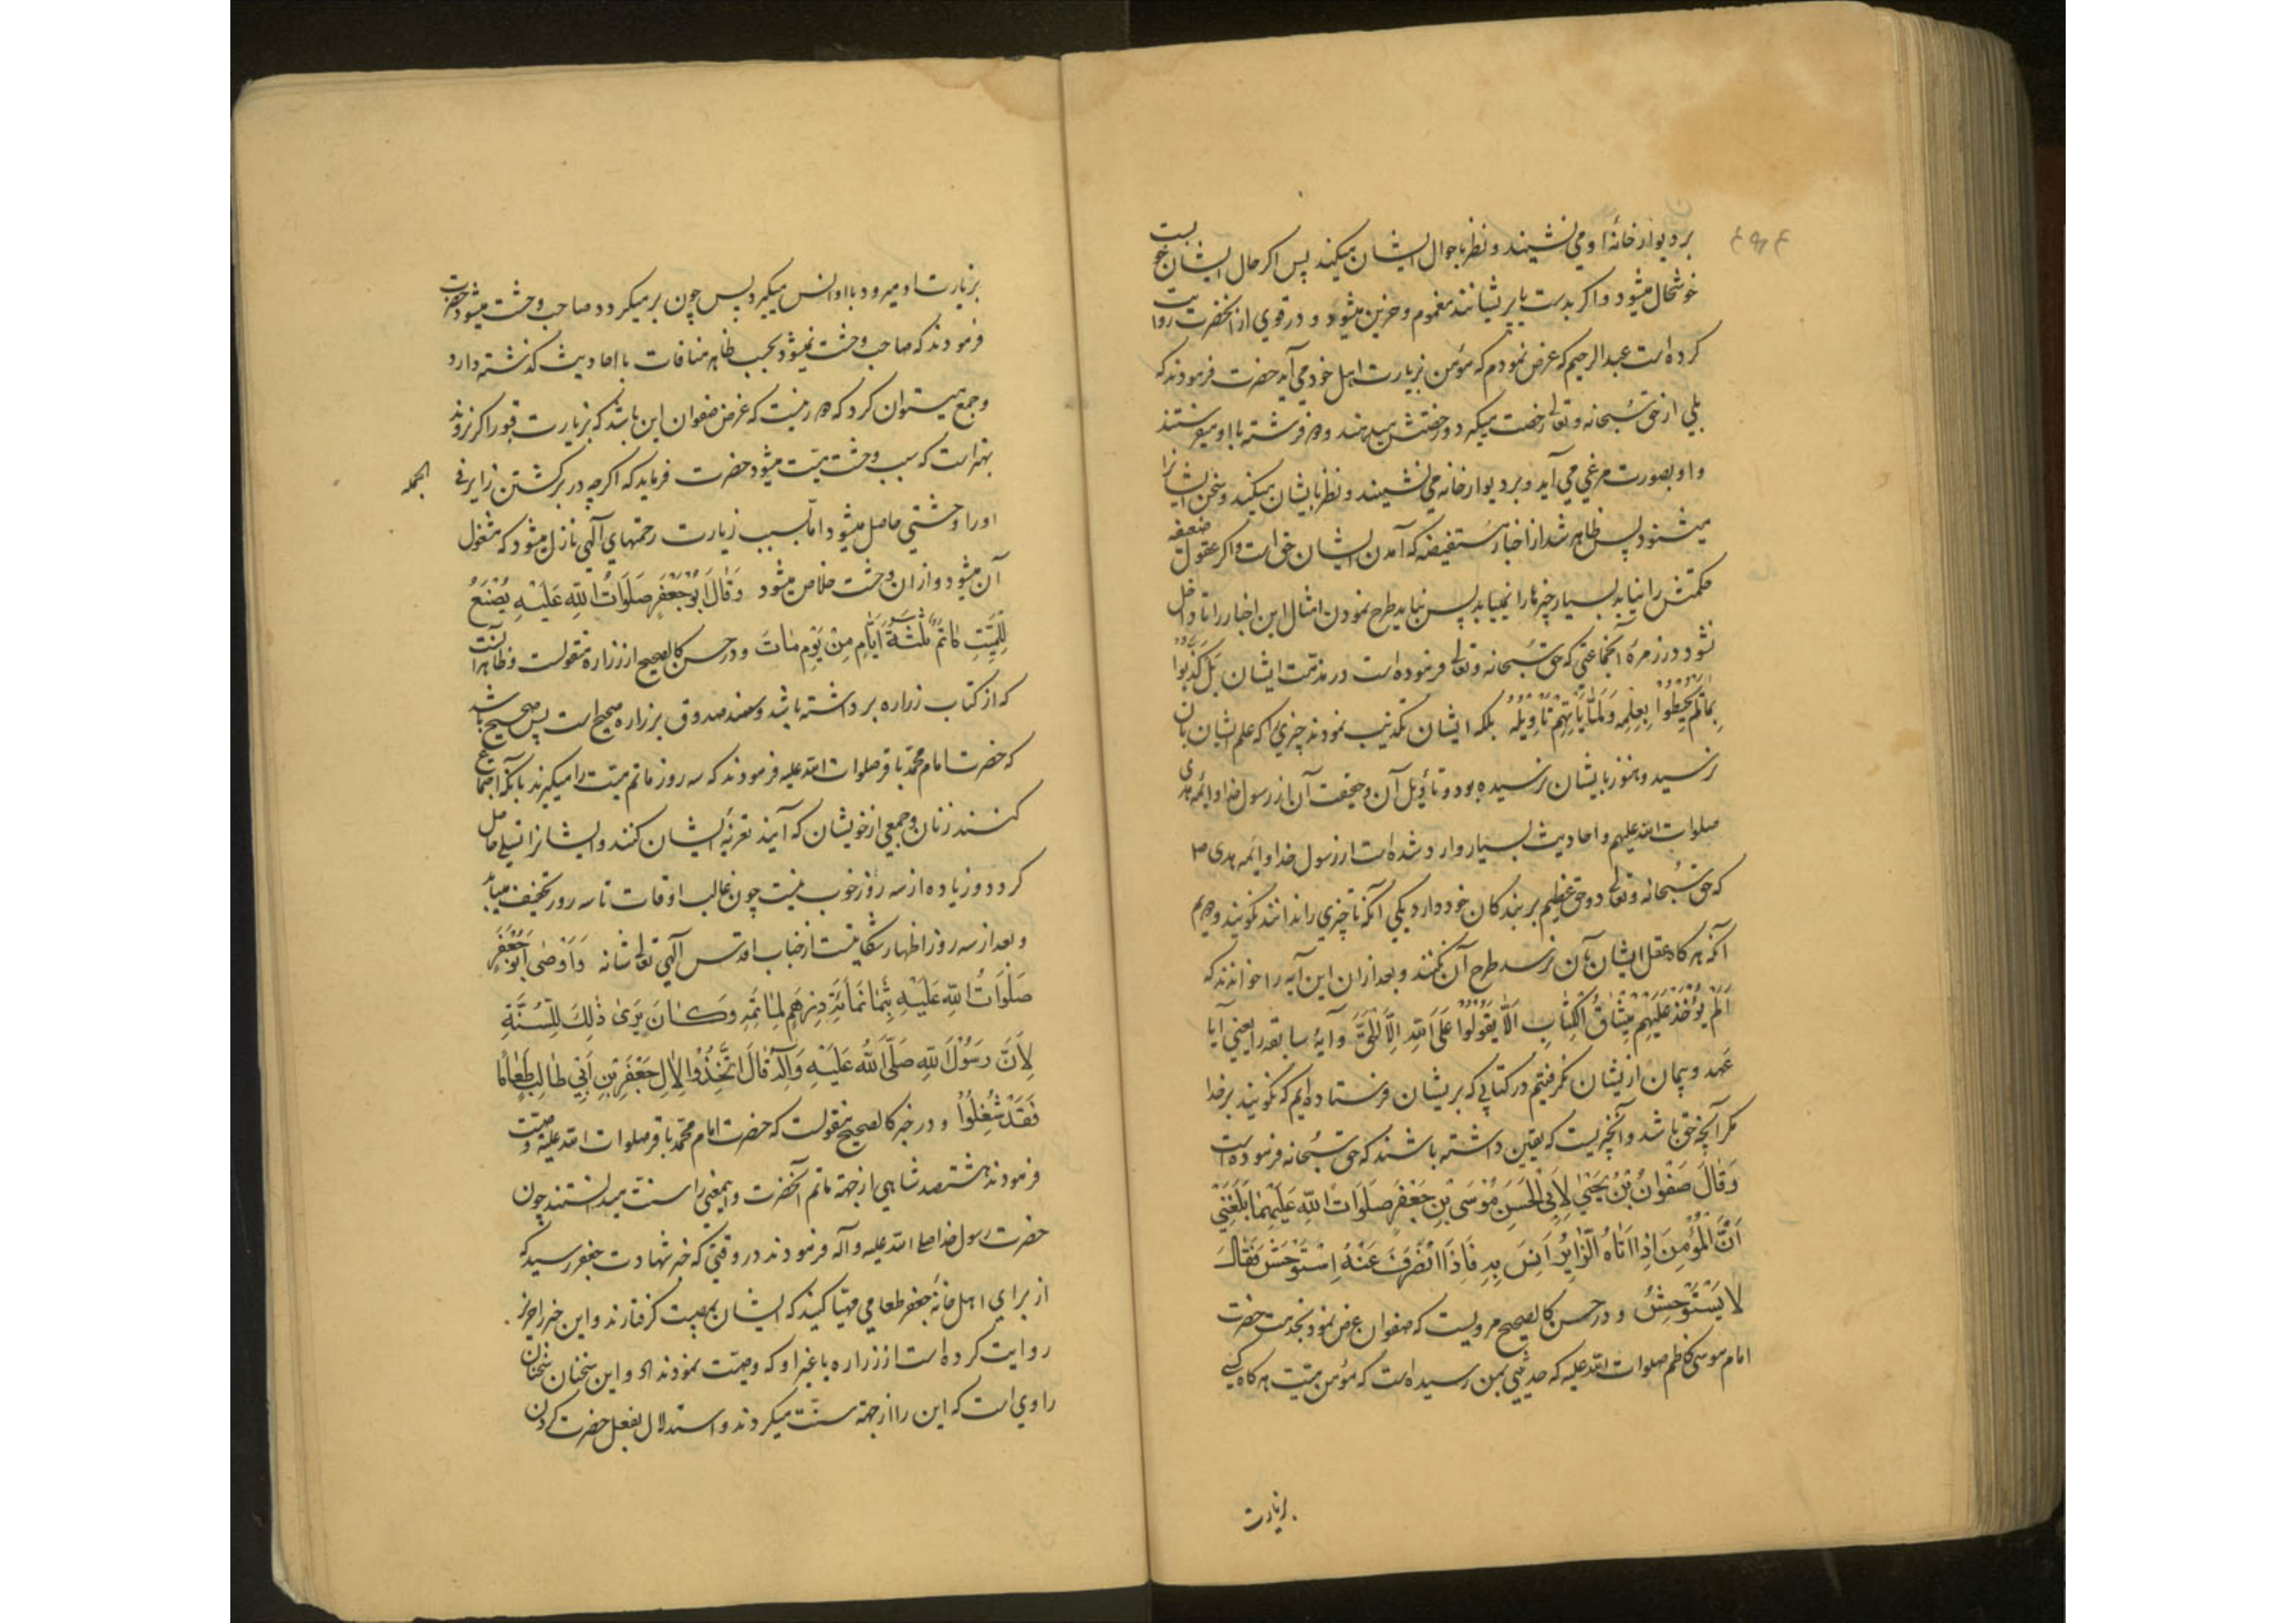 بر دیوار خانهٔ او می نشیند و نظر باحوال ایشان میکند پس اکر حال ایشان خوبست
خوشحال میشود و اکر بدست یا پریشانند مغموم و حزین میشود و در قوی از آنحضرت روایت
کرده است عبدالرحیم که عرض نمودم که مؤمن بزیارت اهل خود می آید حضرت فرمودند که
بلی از حق سبحانه و تعالی رخصت میکیرد و رخصتش میدهند و دو فرشته با او میفرستند
و او بصورت مرغی می آید و بر دیوار خانه می نشیند و نظر بایشان میکند و سخن ایشانرا
میشنود پس ظاهر شد از اخبار مستفیضه که آمدن ایشان حق است و اکر عقول ضعفه
حکمتش را نیابد بسیار چیزها را نمییابد پس نباید طرح نمودن امثال این اخبار را تا داخل
نشود در زمرهٔ آنجماعتی که حق سبحانه و تعالی فرموده است در مذمت ایشان بَل کَذَّبُوا
بِمَا لَمْ یُحِیطُوا بِعِلْمِهِ وَلَمَّا یَأْتِهِمْ تَأْوِیلُهُ بلکه ایشان تکذیب نمودند چیزی را که علم ایشان بآن
نرسید و هنوز بایشان نرسیده بود و تأویل آن و حقیقت آن از رسول خدا و ائمه هدی
صلوات الله علیهم و احادیث بسیار وارد شده است از رسول خدا و ائمه هدی ص
که حق سبحانه و تعالی دو حق عظیم بر بندکان خود دارد یکی آنکه تا چیزی را ندانند نکویند و دویم
آنکه هر کاه عقل ایشان بآن نرسد طرح آن نکنند و بعد از ان این آیه را خواندند که
اَلَمْ یُؤْخَذْ عَلَیْهِمْ مِیثَاقُ الْکِتَابِ اَلَّا یَقُولُوا عَلَی اللهِ اِلَّا الْحَقَّ و آیهٔ سابقه را یعنی آیا
عهد و پیمان از یشان نکرفتیم در کتابی که بریشان فرستاده ایم که نکویند بر خدا
مکر آنچه حق باشد و آنچه یست که یقین داشته باشند که حق سبحانه فرموده است
وَقَالَ صَفْوَانُ بْنُ یَحْیَی لِاَبِی الْحَسَنِ مُوسَی بْنِ جَعْفَرٍ صَلَوَاتُ اللهِ عَلَیْهِمَا بَلَغَنِی
اَنَّ الْمُؤْمِنَ اِذَا اَتَاهُ الزَّایِرُ اَنِسَ بِهِ فَاِذَا انْصَرَفَ عَنْهُ اِسْتَوْحَشَ فَقَالَ
لَا یَسْتَوْحِشُ و در حسن کالصحیح مرویست که صفوان عرض نمود بخدمت حضرت
امام موسی کاظم صلوات الله علیه که حدیثی بمن رسیده است که مؤمن میّت هر کاه کسی
بزیارت
بزیارت او میرود با او انس میکیرد پس چون بر میکردد صاحب وحشت میشود حضرت
فرمودند که صاحب وحشت نمیشود بحسب ظاهر منافات با احادیث کذشته دارد
و جمع میتوان کرد که دور نیست که غرض صفوان این باشد که بزیارت قبور اکر نروند
بهتر است که سبب وحشت میّت میشود حضرت فرماید که اکرچه در برکشتن زایر فی الجمله
او را وحشتی حاصل میشود اما بسبب زیارت رحمتهای آلهی نازل میشود که مشغول
آن میشود و از ان وحشت خلاص میشود وَقَالَ اَبُو جَعْفَرٍ صَلَوَاتُ اللهِ عَلَیْهِ یُصْنَعُ
لِلْمَیِّتِ مَاتَمٌ ثَلٰثَةَ اَیَّامٍ مِنْ یَوْمِ مَاتَ و در حسن کالصحیح از زراره منقولست و ظاهرا آنست
که از کتاب زراره برداشته باشد و سند صدوق بزراره صحیح است پس صحیح باشد
که حضرت امام محمد باقر صلوات الله علیه فرمودند که سه روز ماتم میّت را میکیرند بآنکه اجتماع
کنند زنان و جمعی از خویشان که آیند تعزیهٔ ایشان کنند و ایشانرا تسلی حاصل
کردد و زیاده از سه روز خوب نیست چون غالب اوقات تا سه روز تخفیف مییابد
و بعد از سه روز اظهار شکایتست از جناب اقدس آلهی تعالی شانه وَاَوْصٰی اَبُو جَعْفَرٍ
صَلَوَاتُ اللهِ عَلَیْهِ بِثَمَانِمَائَةِ دِرْهَمٍ لِمَأتَمِهِ وَکَانَ یَرٰی ذٰلِکَ لِلسُّنَّةِ
لِاَنَّ رَسُولَ اللهِ صَلَّی اللهُ عَلَیْهِ وَآلِهِ قَالَ اتَّخِذُوا لِاٰلِ جَعْفَرِ بْنِ اَبِی طَالِبٍ طَعَامًا
فَقَدْ شُغِلُوا و در خبر کالصحیح منقولست که حضرت امام محمد باقر صلوات الله علیه وصیت
فرمودند هشتصد شاهی از جهة ماتم آنحضرت و اینمعنی را سنت میدانستند چون
حضرت رسول خدا صلی الله علیه و آله فرمودند در وقتی که خبر شهادت جعفر رسید که
از برای اهل خانهٔ جعفر طعامی مهیا کنید که ایشان بمصیبت کرفتارند و این خبر را حریز
روایت کرده است از زراره یا غیر او که وصیت نمودند الخ و این سخنان سخنان
راوی است که این را از جهة سنت میکردند و استدلال بفعل حضرت کردن